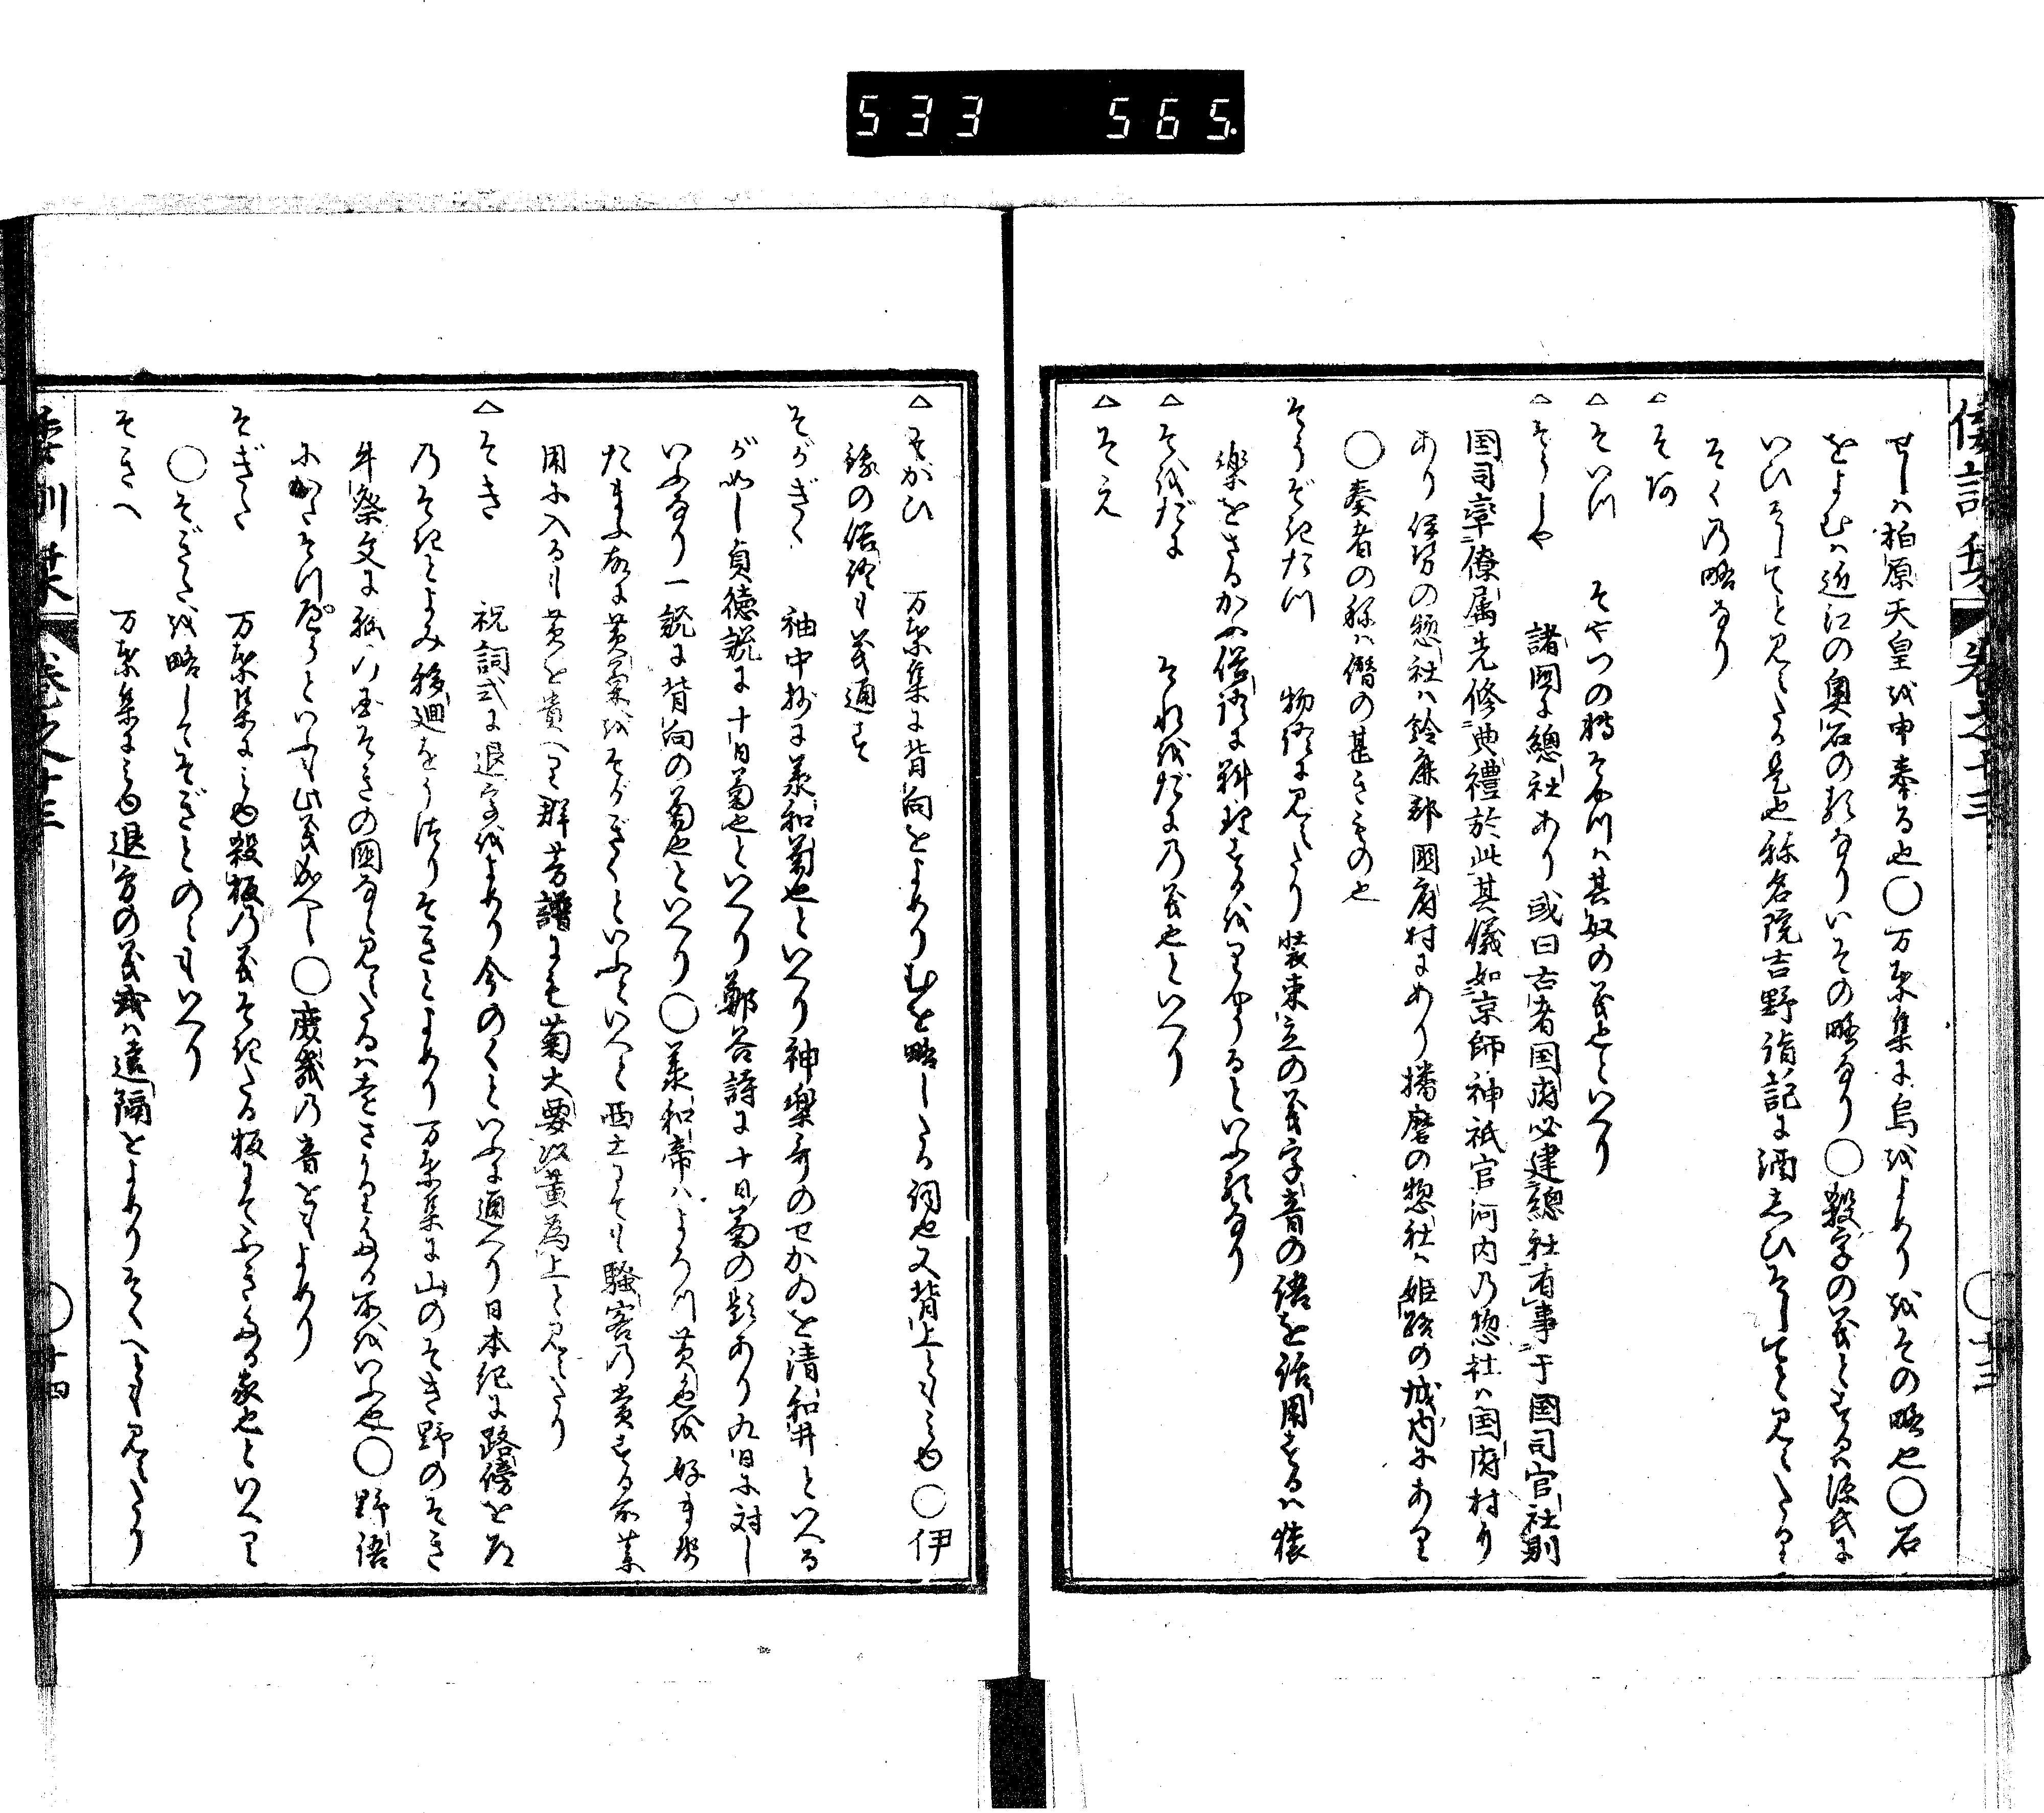 533 565
倭訓栞 卷之十三 ○十三
せしハ柏原天皇を申奉る也○万葉集に烏をよめりをその略也○石
をよむハ近江の奥石の類なりいその略なり○殺字の義とするハ源氏に
いひそしてと見えたる是也称名院吉野詣記に酒しひそしてと見えたり
そくの略なり
△そ河
△そいつ そやつの転そやつハ其奴の義也といへり
△そうしや 諸国に總社あり或曰古者国府必建總社有事于国司官社則
国司率僚属先修典禮於此其儀如京師神祇官河内の惣社ハ国府村に
あり伊勢の惣社ハ鈴鹿郡国府村にあり播磨の惣社ハ姫路の城内にあり
○奏者の称ハ僭の甚きもの也
そうぞきたつ 物語に見えたり装束立の義字音の語を活用するハ猿
楽をさるがひ俗語に料理するをりやうるといふ類なり
△そをだに それをだにの義也といへり
△そえ
△そがひ 万葉集に背向をよめりむを略したる詞也又背上ともみゆ○伊
豫の俗語も義通ず
そがぎく 袖中抄に承和菊也といへり神楽哥のせかゐを清和井といへる
が如し貞徳説に十日菊也といへり鄭谷詩に十日菊の題あり九日に対し
いふなり一説に背向の菊也といへり○承和帝ハよろつ黄色を好ませ
たまふ故に黄菊をそがぎくといふといへと西土にても騒客の賞する所菜
用に入るも黄を貴へり群芳譜にも菊大要以黄為上と見えたり
△そき 祝詞式に退字をよめり今のくといふに通へり日本紀に路傍を
のそきとよみ移廻をうつりそきとよめり万葉集に山のそき野のそき
牛祭文に
○野語
○度幾の音をもよめり
そぎた 万葉集にみゆ殺板の義そきたる板にてふきたる家也といへり
○そぎたを略してそぎとのみもいへり
そきへ 万葉集にみゆ退方の義或ハ遠隔をよめりそくへとも見えたり
倭訓栞 卷之十三 ○十四